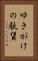 ゆきがけ
の駄賃